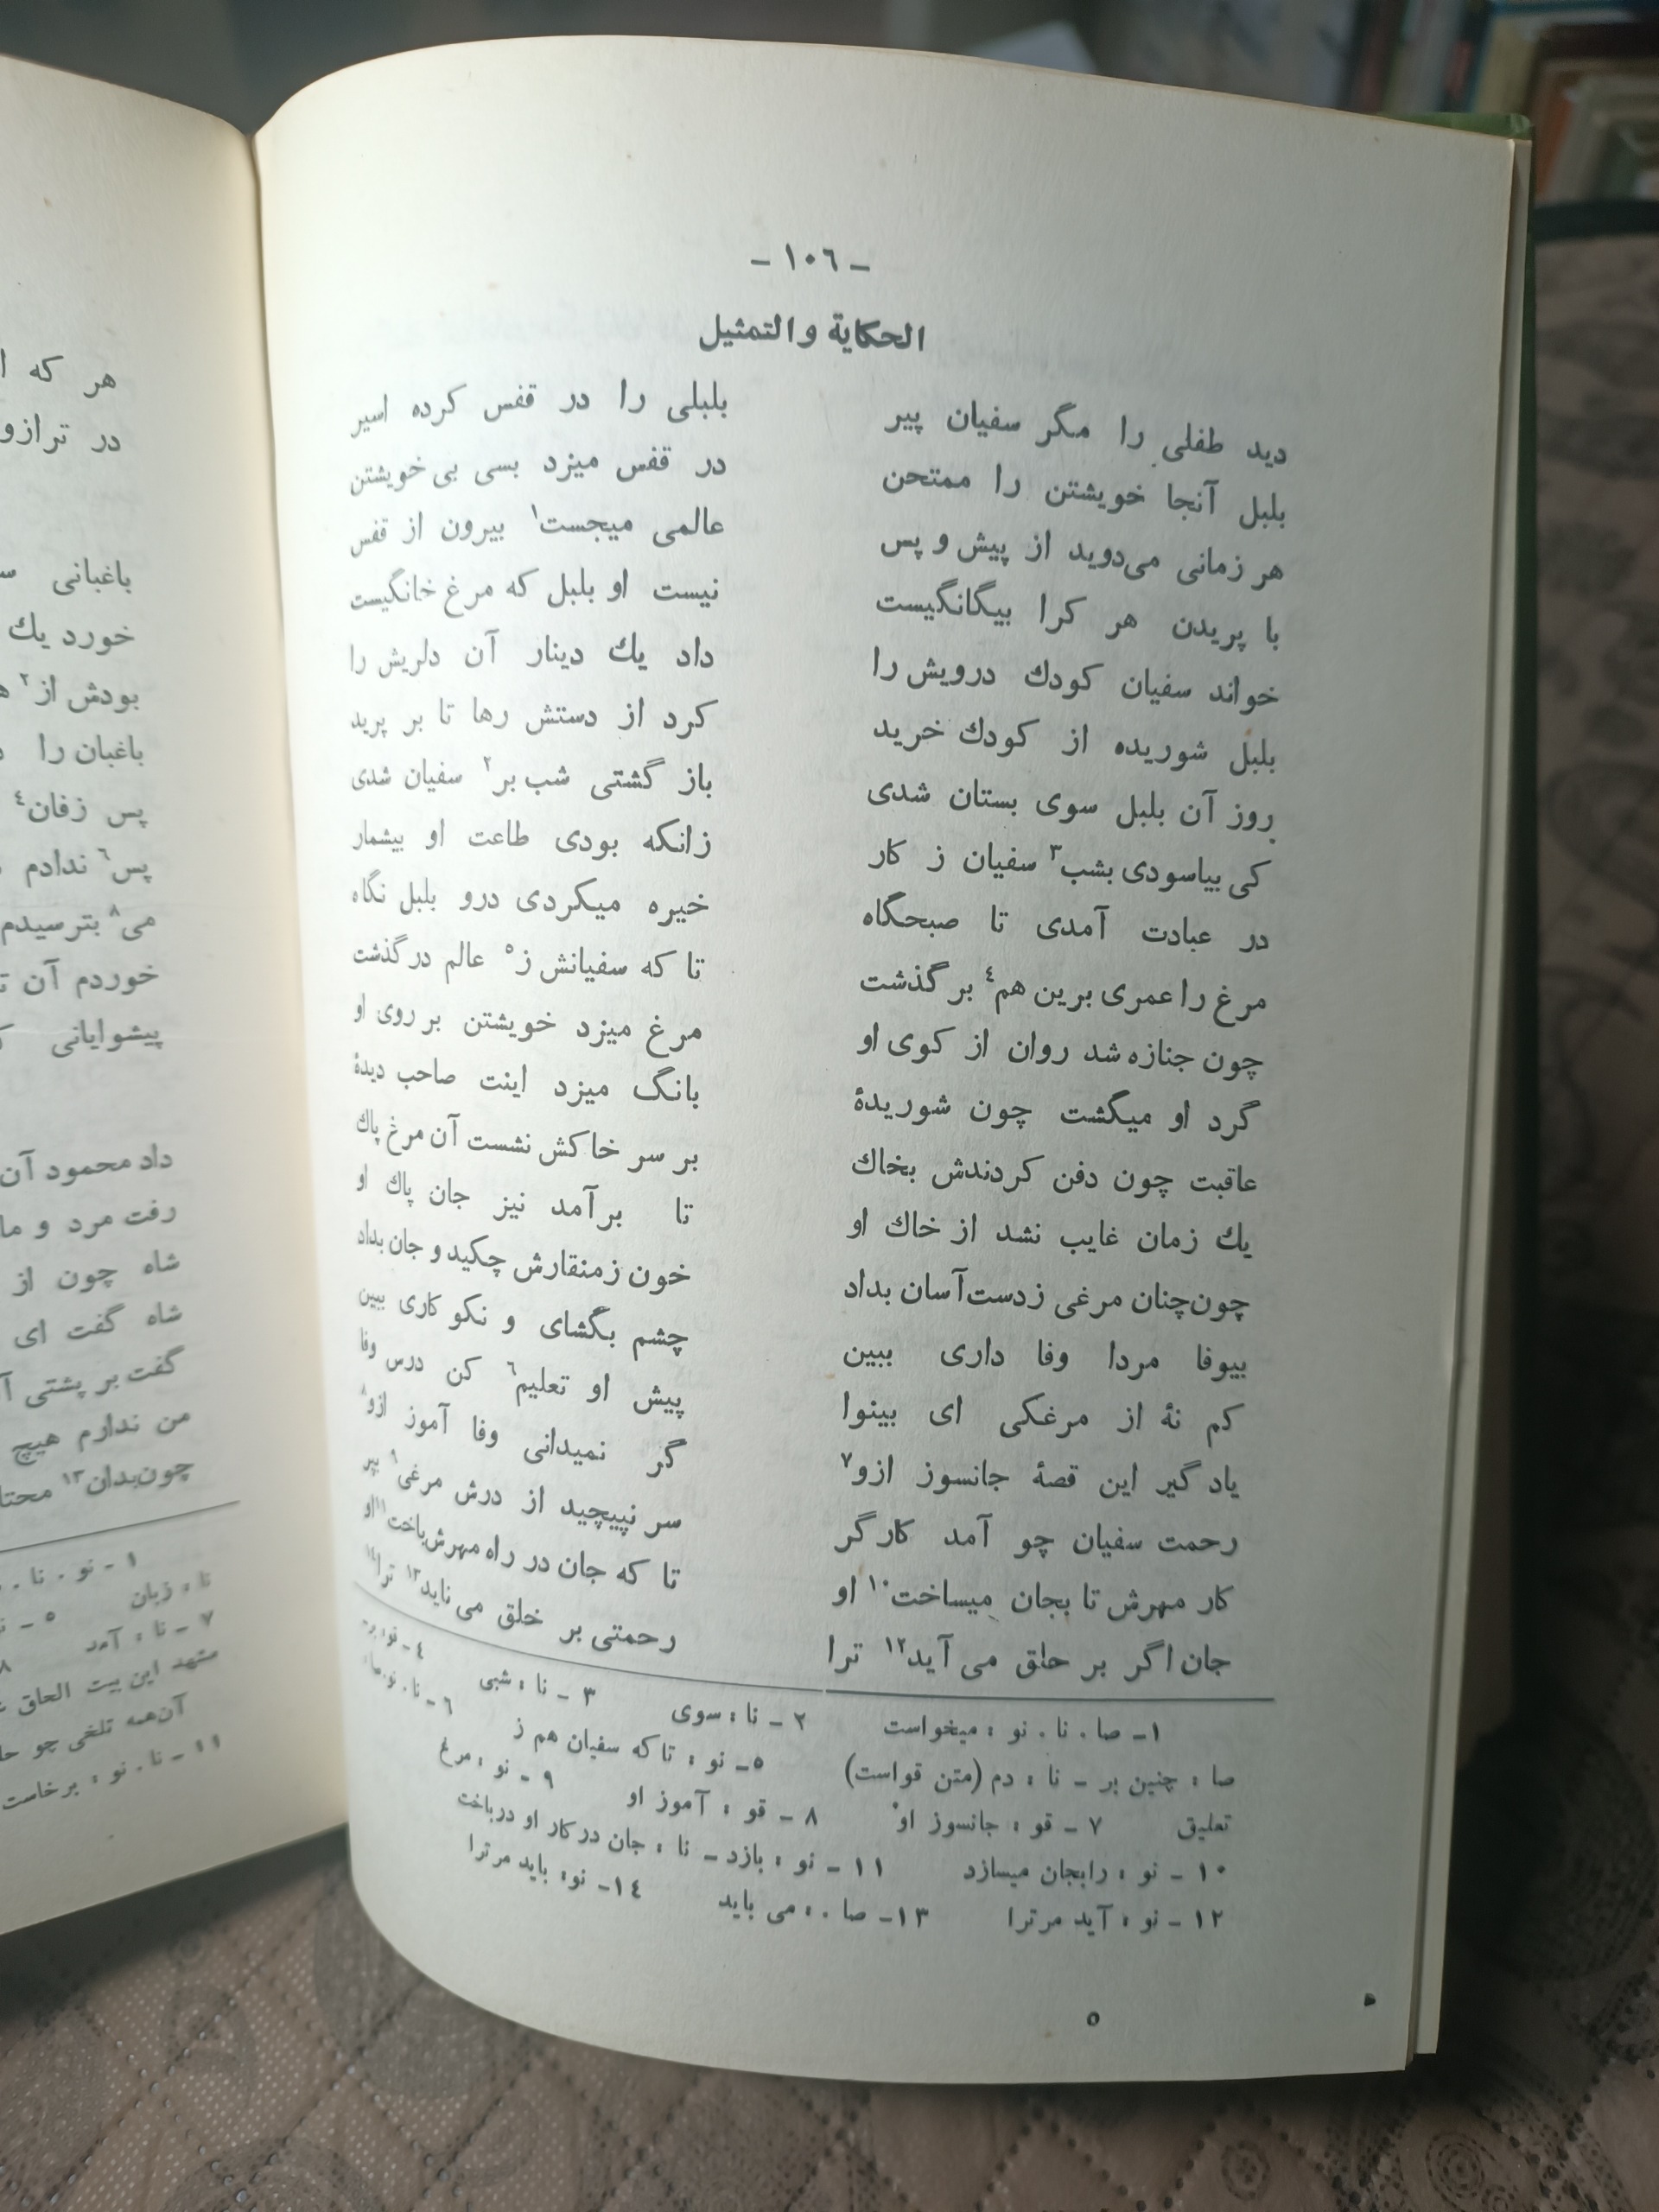 - ١٠٦ -
الحكایة والتمثیل
دید طفلی را مگر سفیان پیر بلبلی را در قفس کرده اسیر
بلبل آنجا خویشتن را ممتحن در قفس میزد بسی بی خویشتن
هر زمانی می‌دوید از پیش و پس عالمی میجست١ بیرون از قفس
با پریدن هر کرا بیگانگیست نیست او بلبل که مرغ خانگیست
خواند سفیان کودك درویش را داد یك دینار آن دلریش را
بلبل شوریده از کودك خرید کرد از دستش رها تا بر پرید
روز آن بلبل سوی بستان شدی باز گشتی شب بر٢ سفیان شدی
کی بیاسودی بشب٣ سفیان ز کار زانکه بودی طاعت او بیشمار
در عبادت آمدی تا صبحگاه خیره میکردی درو بلبل نگاه
مرغ را عمری برین هم٤ بر گذشت تا که سفیانش ز٥ عالم در گذشت
چون جنازه شد روان از کوی او مرغ میزد خویشتن بر روی او
گرد او میگشت چون شوریدهٔ بانگ میزد اینت صاحب دیدهٔ
عاقبت چون دفن کردندش بخاك بر سر خاکش نشست آن مرغ پاك
یك زمان غایب نشد از خاك او تا برآمد نیز جان پاك او
چون‌چنان مرغی زدست‌آسان بداد خون زمنقارش چکید و جان بداد
بیوفا مردا وفا داری ببین چشم بگشای و نکو کاری ببین
کم نهٔ از مرغکی ای بینوا پیش او تعلیم٦ کن درس وفا
یاد گیر این قصهٔ جانسوز ازو٧ گر نمیدانی وفا آموز ازو٨
رحمت سفیان چو آمد کارگر سر نپیچید از درش مرغی٩ بپر
کار مهرش تا بجان میساخت١٠ او تا که جان در راه مهرش باخت١١ او
جان اگر بر حلق می آید١٢ ترا رحمتی بر خلق می ناید١٣ ترا١٤
١- صا . نا . نو : میخواست ٢ - نا : سوی ٣ - نا : شبی ٤ - نو :
صا : چنین بر - نا : دم (متن قواست) ٥- نو : تا که سفیان هم ز ٦ - نا . نو .صا :
تعلیق ٧ - قو : جانسوز او ٨ - قو : آموز او ٩ - نو : مرغ
١٠ - نو : رابجان میسازد ١١ - نو : بازد - نا : جان در کار او درباخت
١٢ - نو : آید مر ترا ١٣- صا . : می باید ١٤- نو: باید مر ترا
هر که
در ترازو
باغبانی
خورد یك
بودش از٢
باغبان را
پس زفان٤
پس٦ ندادم
می٨ بترسیدم
خوردم آن
پیشوایانی
داد محمود آن
رفت مرد و
شاه چون از
شاه گفت ای
گفت بر پشتی
من ندارم هیچ
چون‌بدان١٣
١ - نو . نا .
نا : زبان ٥ -
٧ - نا : آمد ٨
مشهد این بیت الحاق
آن‌همه تلخی چو
١١ - نا . نو : برخاست